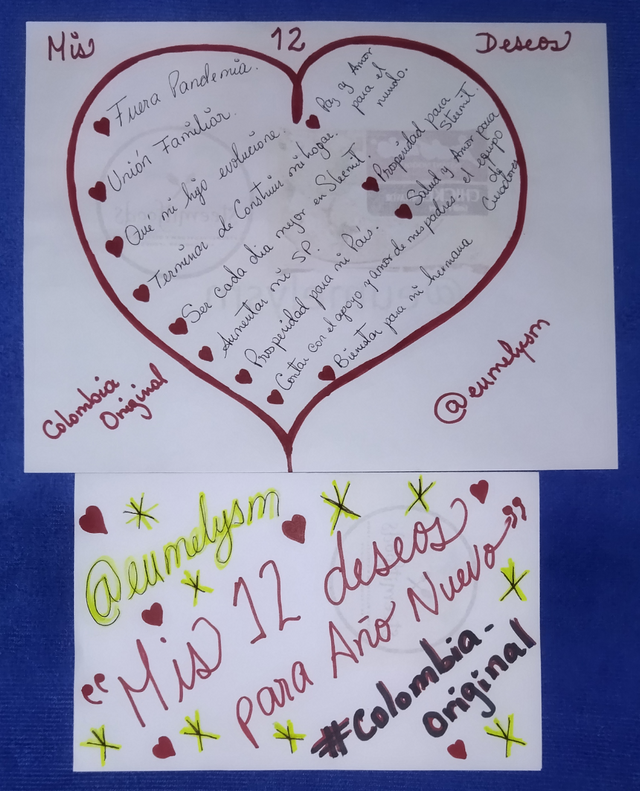 Mis 12 Deseos
Fuera Pandemia.
Unión Familiar.
Qué mi hijo evolucione.
Terminar de Construir mi hogar.
Ser cada dia mejor en Steemit
Aumentar mi SP.
Prosperidad para mi País.
Contar con el apoyo y amor de mis padres.
Bienestar para mi hermana
Paz y Amor
para el
mundo.
Prosperidad para
Steemit.
Salud y Amor para
el equipo
de
Curadores
Colombia
Original
@eumelysm
@eumelysm
"Mis 12 deseos
para Año Nuevo"
#Colombia-
Original